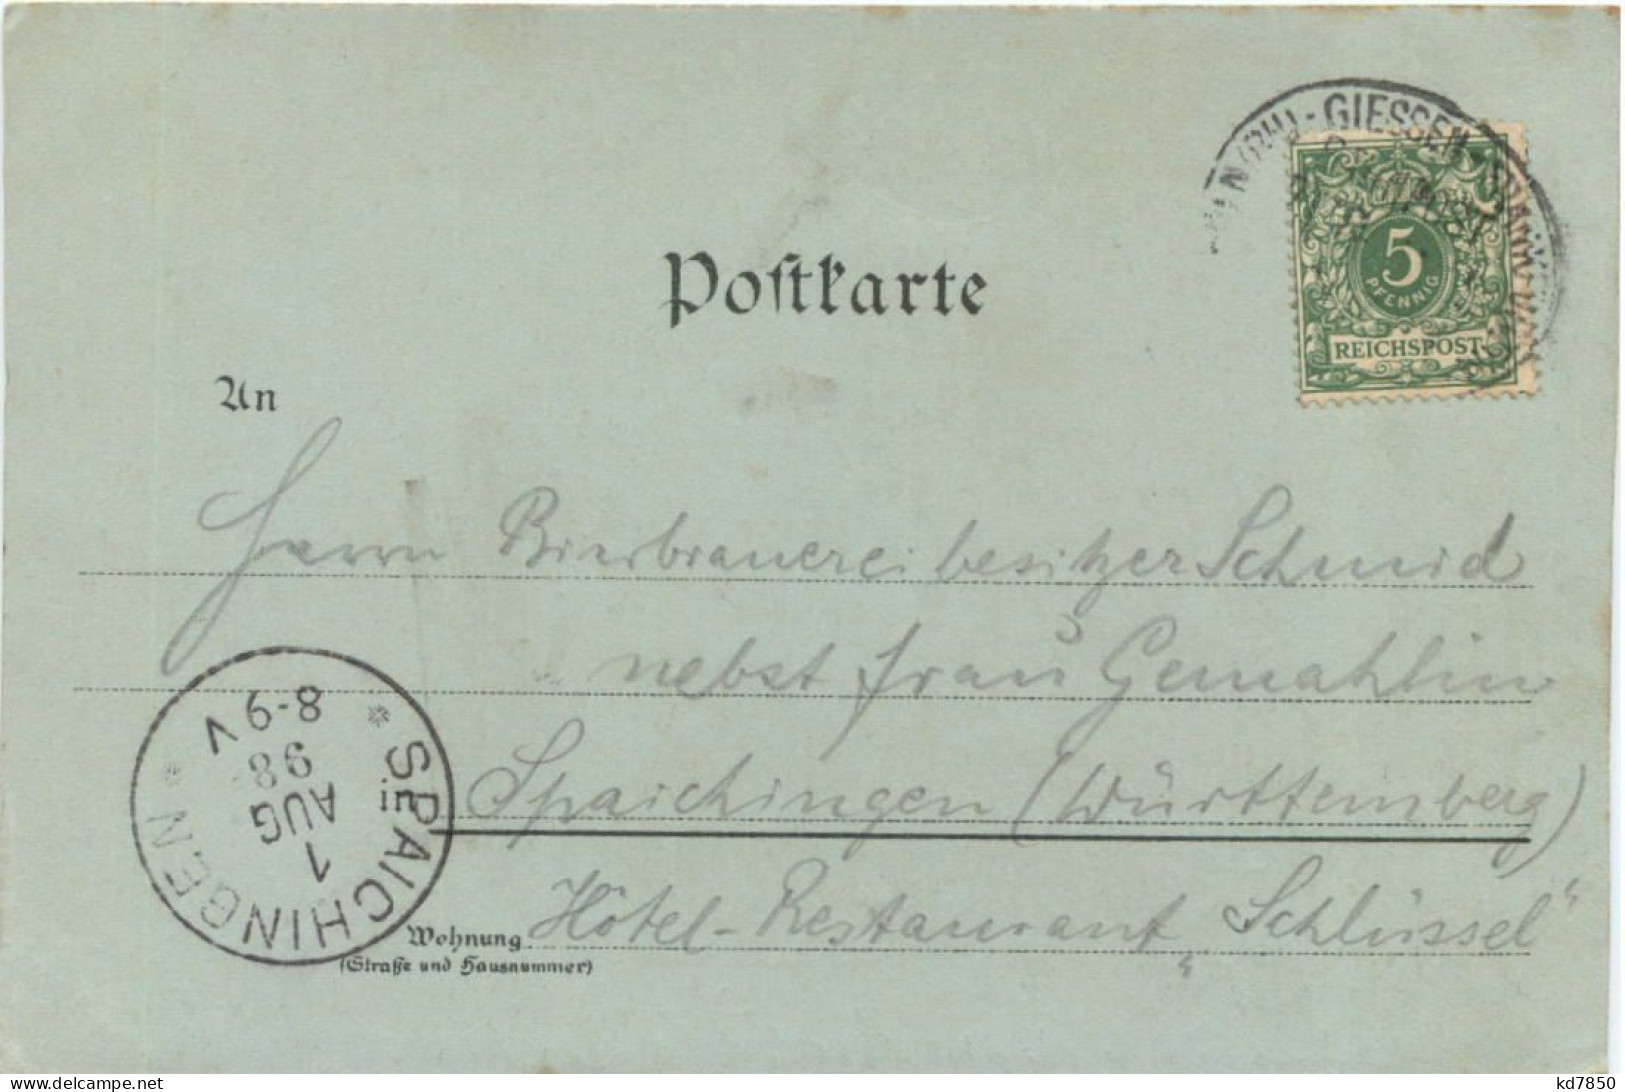 Postkarte
(RH)-GIESSEN-
BAHNPOST
5
PFENNIG
REICHSPOST
An
Herrn Bierbrauereibesitzer Schmid
nebst Frau Gemahlin
in Spaichingen (Württemberg)
Wohnung Hôtel-Restaurant „Schlüssel“
(Straße und Hausnummer)
* SPAICHINGEN *
1
AUG
98
8-9 V
kd7850